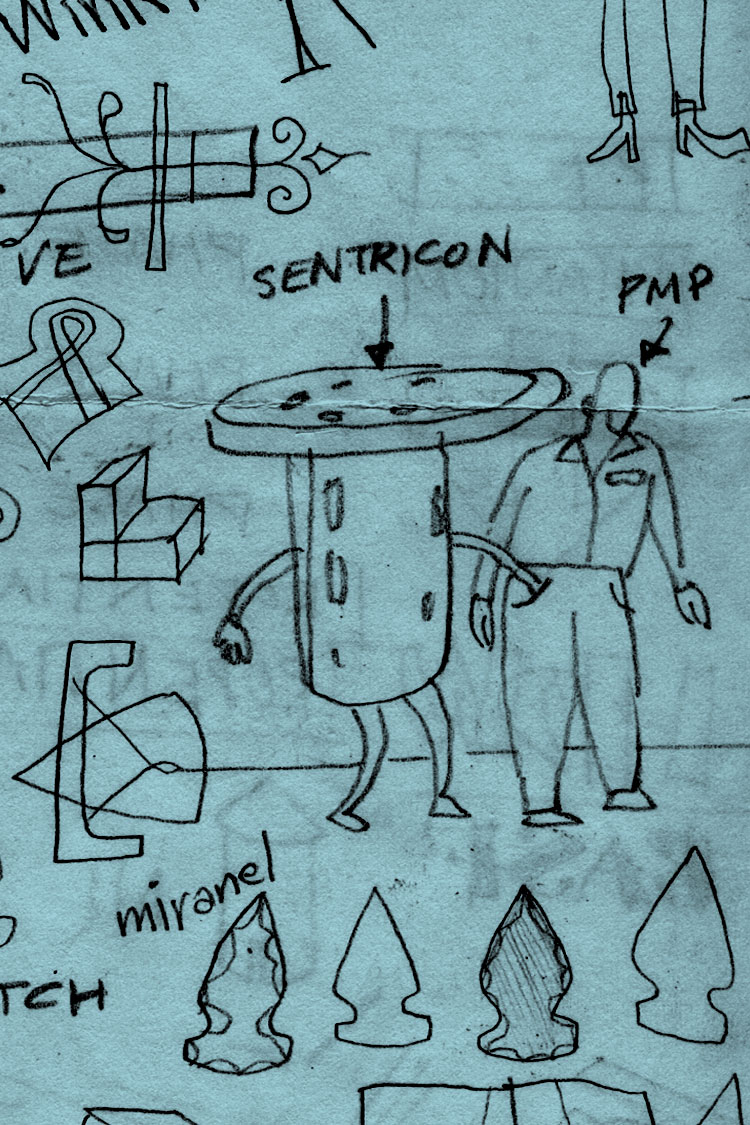 VE
SENTRICON
PMP
miranel
TCH